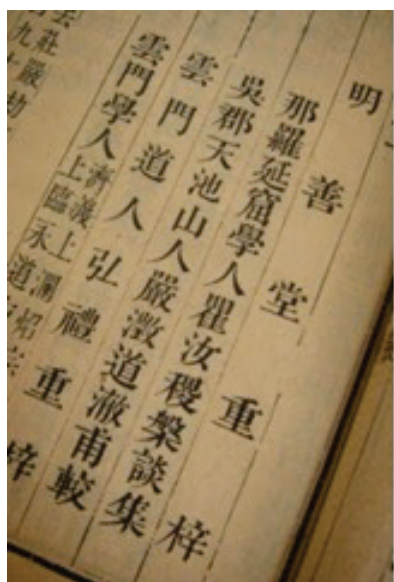 明善堂重梓
那羅延窟學人瞿汝稷槃談集
吳郡天池山人嚴澂道澈甫較
雲門道人弘禮重梓
雲門學人
莊嚴劫